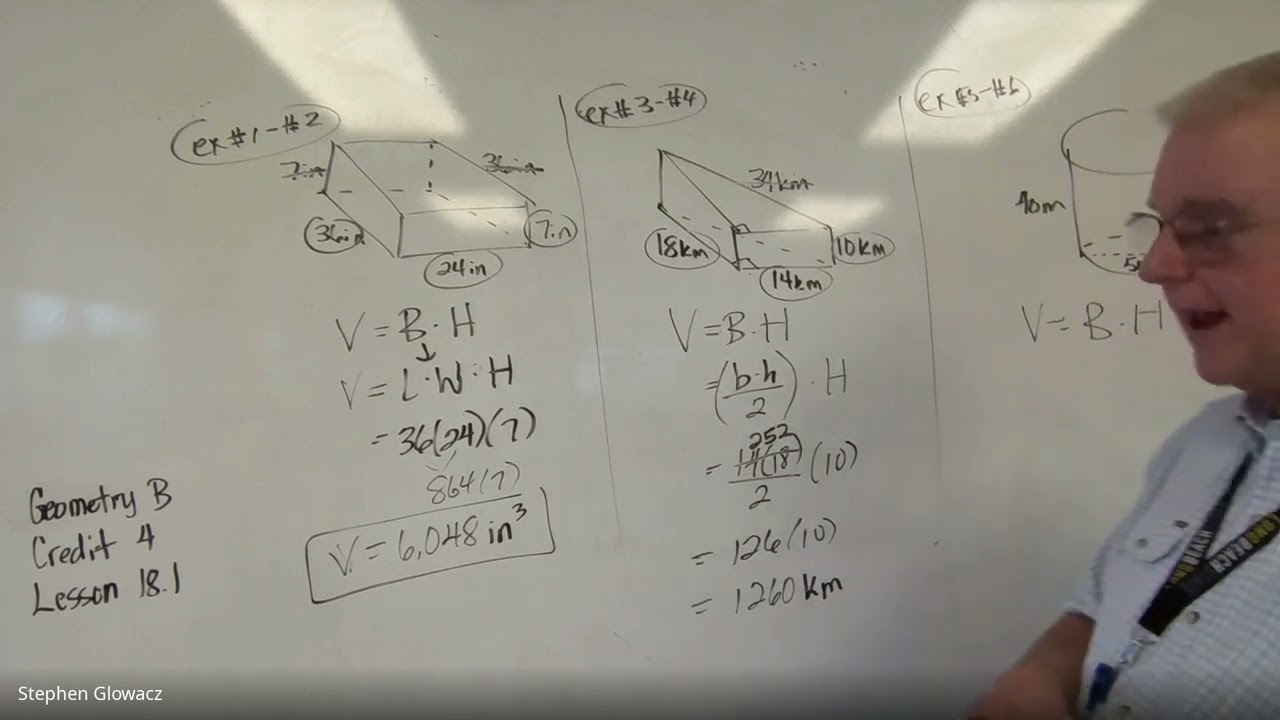 ex #1-#2
7in
36in
36in
7in
24in
V = B · H
↓
V = L · W · H
= 36(24)(7)
864(7)
V = 6,048 in³
Geometry B
Credit 4
Lesson 18.1
ex# 3-#4
34km
18km
10km
14km
V = B · H
= (b·h/2) · H
252
= 14(18)/2 (10)
= 126(10)
= 1260 km
ex #5-#6
40m
V = B · H
Stephen Glowacz